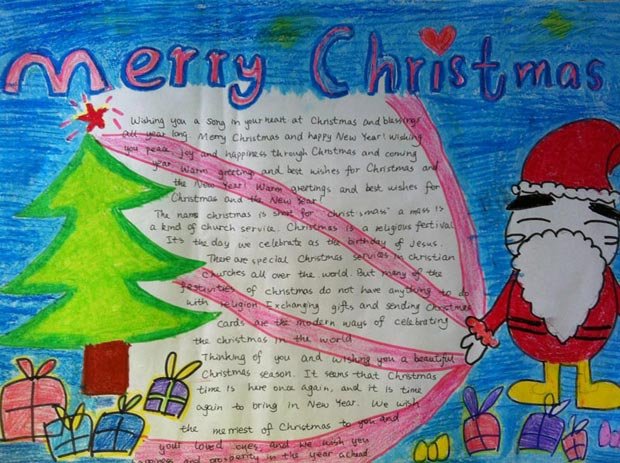 Merry Christmas
Wishing you a song in your heart at Christmas and blessings
all year long. Merry Christmas and happy New Year! Wishing
you peace, joy and happiness through Christmas and coming
year. Warm greetings and best wishes for Christmas and
the New Year! Warm greetings and best wishes for
Christmas and the New Year!
The name christmas is short for "christ's mass" a mass is
a kind of church service. Christmas is a religious festival
It's the day we celebrate as the birthday of Jesus.
There are special Christmas services in christian
churches all over the world. But many of the
festivities of christmas do not have anything to do
with religion. Exchanging gifts and sending Christmas
Cards are the modern ways of celebrating
the christmas in the world
Thinking of you and wishing you a beautiful
Christmas season. It seems that Christmas
time is here once again, and it is time
again to bring in New Year. We wish
the merriest of Christmas to you and
your loved ones, and we wish you
happiness and prosperity in the year ahead.